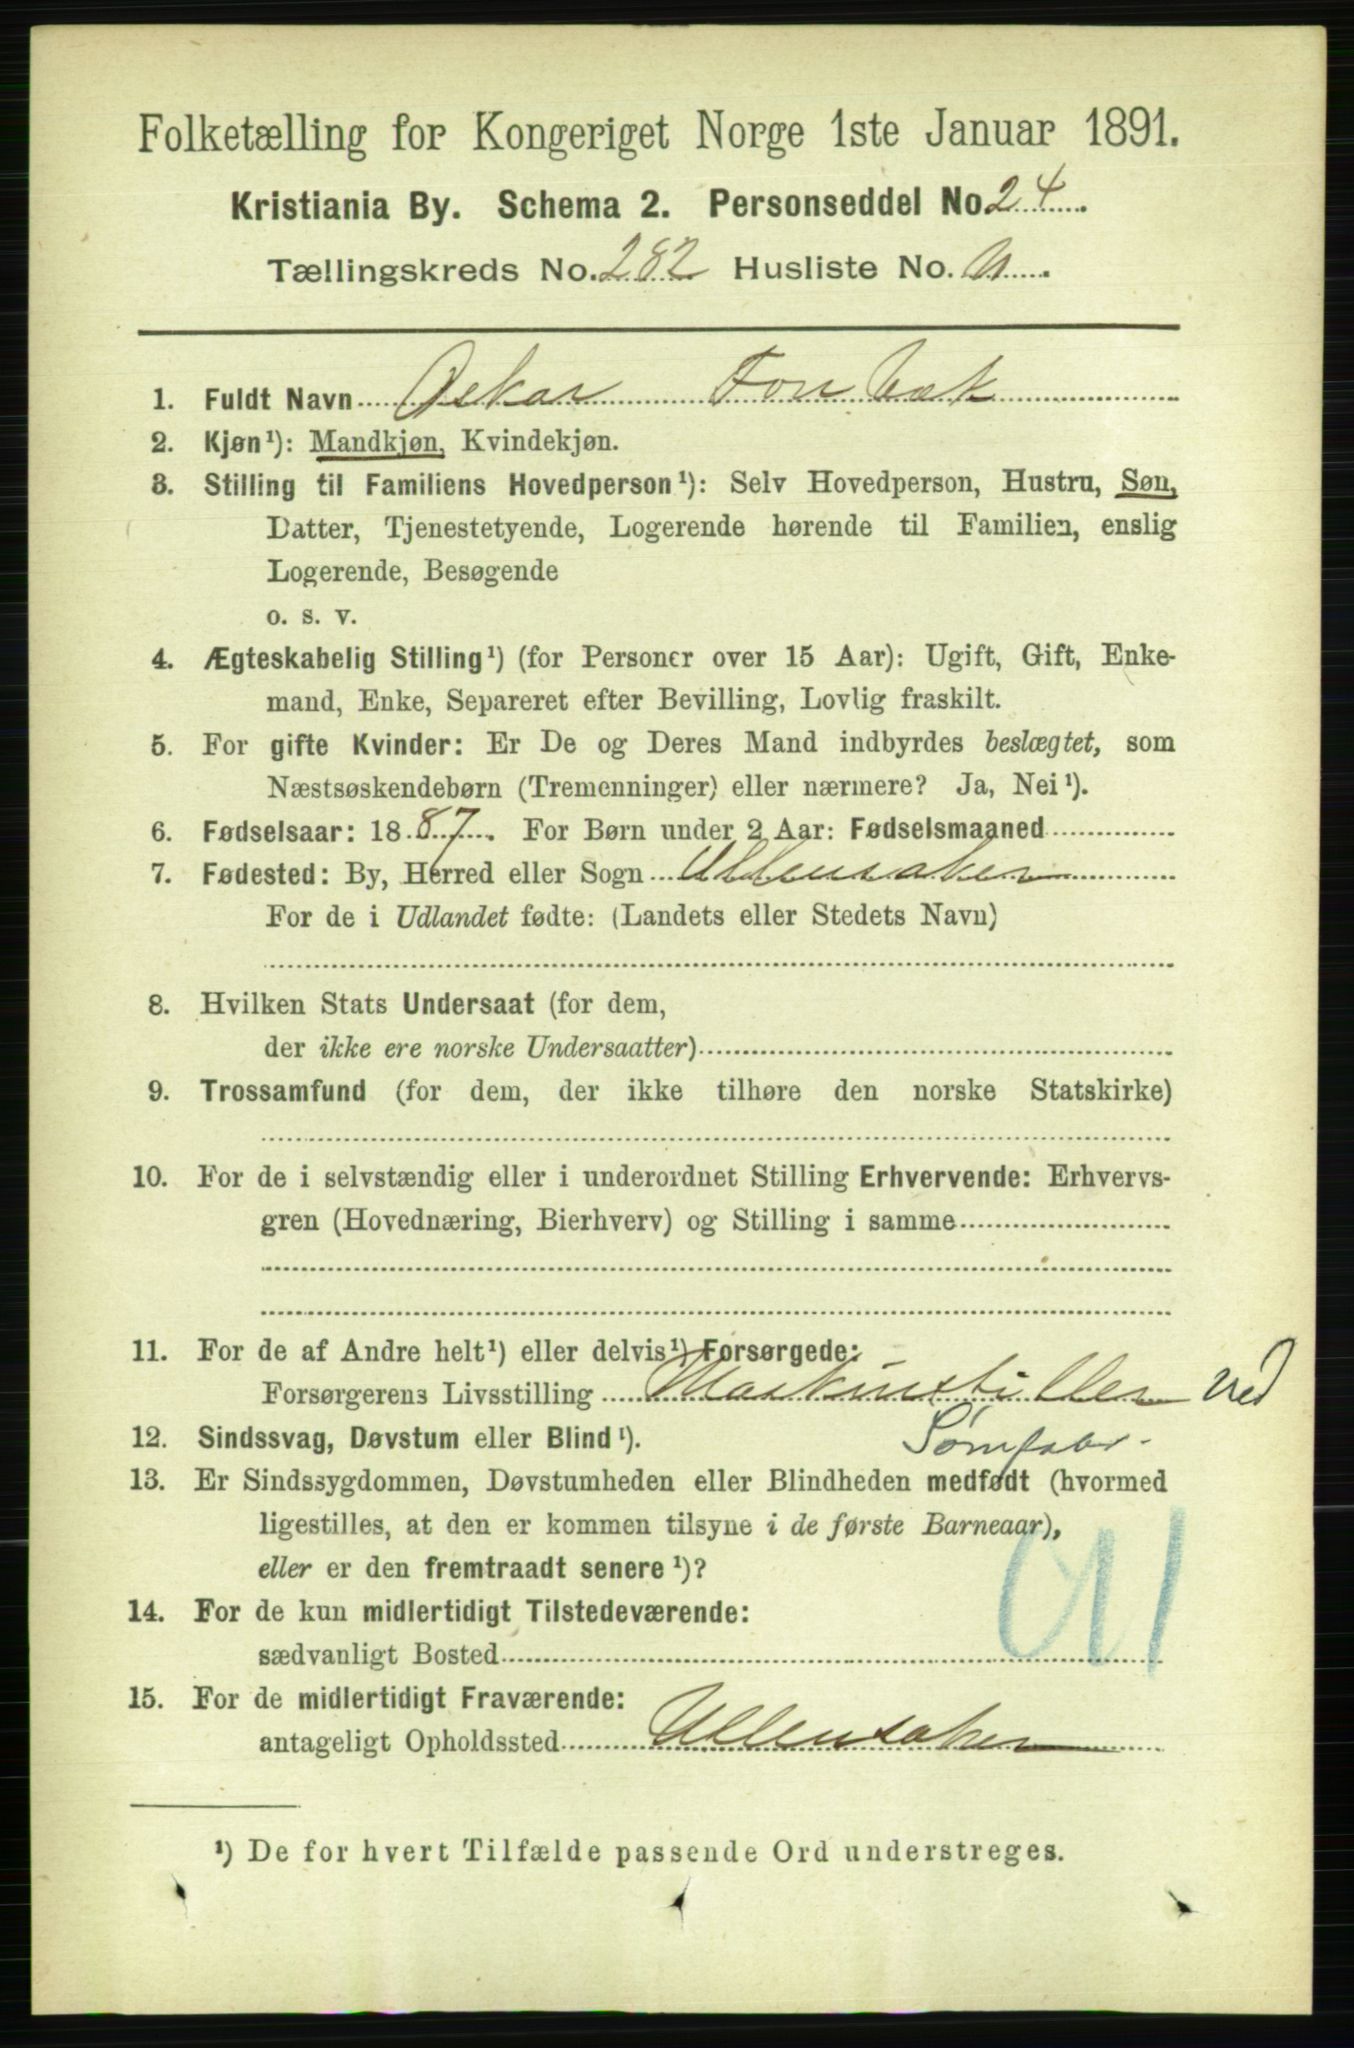 Folketælling for Kongeriget Norge 1ste Januar 1891.
Kristiania By. Schema 2. Personseddel No 24.
Tællingskreds No. 282 Husliste No.
1. Fuldt Navn Oskar Fonbæk
2. Kjøn¹): Mandkjøn, Kvindekjøn.
3. Stilling til Familiens Hovedperson¹): Selv Hovedperson, Hustru, Søn,
Datter, Tjenestetyende, Logerende hørende til Familien, enslig
Logerende, Besøgende
o. s. v.
4. Ægteskabelig Stilling¹) (for Personer over 15 Aar): Ugift, Gift, Enke-
mand, Enke, Separeret efter Bevilling, Lovlig fraskilt.
5. For gifte Kvinder: Er De og Deres Mand indbyrdes beslægtet, som
Næstsøskendebørn (Tremenninger) eller nærmere? Ja, Nei¹).
6. Fødselsaar: 1887. For Børn under 2 Aar: Fødselsmaaned
7. Fødested: By, Herred eller Sogn Ullensaker
For de i Udlandet fødte: (Landets eller Stedets Navn)
8. Hvilken Stats Undersaat (for dem,
der ikke ere norske Undersaatter)
9. Trossamfund (for dem, der ikke tilhøre den norske Statskirke)
10. For de i selvstændig eller i underordnet Stilling Erhvervende: Erhvervs-
gren (Hovednæring, Bierhverv) og Stilling i samme
11. For de af Andre helt¹) eller delvis¹) Forsørgede:
Forsørgerens Livsstilling Maskinstiller ved
Sømfabr.
12. Sindssvag, Døvstum eller Blind¹).
13. Er Sindssygdommen, Døvstumheden eller Blindheden medfødt (hvormed
ligestilles, at den er kommen tilsyne i de første Barneaar),
eller er den fremtraadt senere¹)?
14. For de kun midlertidigt Tilstedeværende:
sædvanligt Bosted
15. For de midlertidigt Fraværende:
antageligt Opholdssted Ullensaker
¹) De for hvert Tilfælde passende Ord understreges.